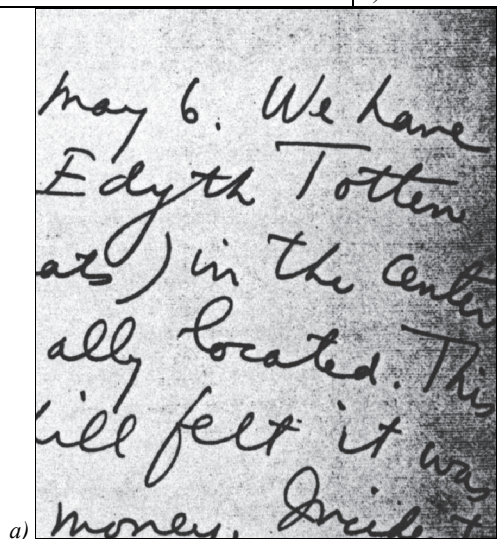 May 6. We have
Edyth Totten
ats) in the center
ally located. This
ill felt it was
money.
a)